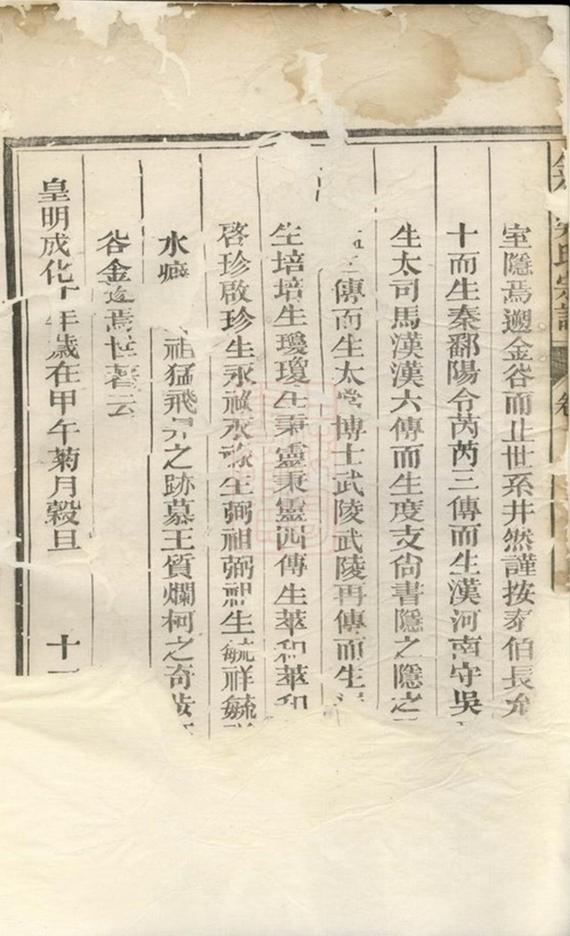 室隱焉遡金谷而止世系井然謹按泰伯長允
十而生秦鄱陽令芮芮三傳而生漢河南守吳
生太司馬漢漢六傳而生度支尚書隱之隱之
傳而生太常博士武陵武陵再傳而生
生培培生瓊瓊生秉靈秉靈四傳生萃和萃和
啓珍啟珍生永祿永祿生弼祖弼祖生毓祥毓
水 祖猛飛昇之跡慕王質爛柯之奇
谷金 焉世 云
皇明成化十年歲在甲午菊月穀旦 十
氏宗譜 卷